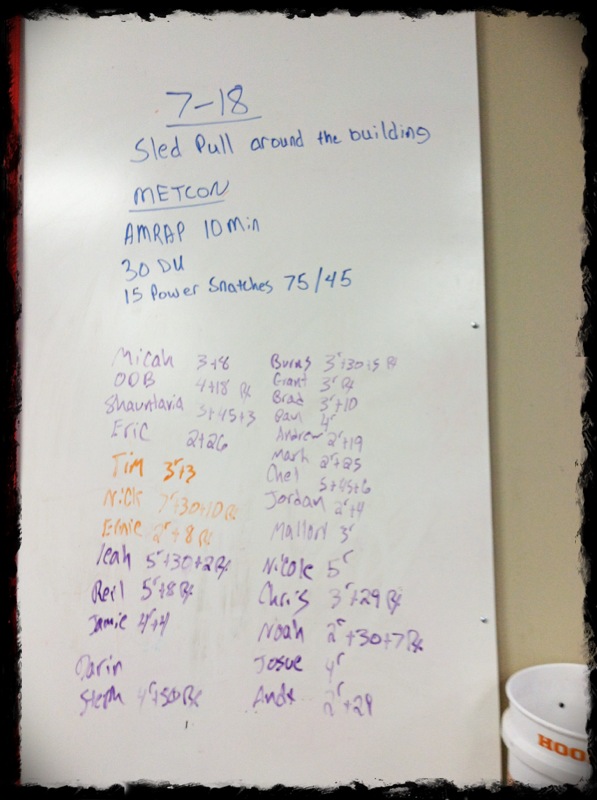 7-18
Sled Pull around the building
METCON
AMRAP 10 Min
30 DU
15 Power Snatches 75/45
Micah 3+8
ODB 4+18 Rx
Shauntavia 3+45+3
Eric 2+26
Tim 3r+3
Nick 7r+30+10 Rx
Ernie 2r+8 Rx
Leah 5r+30+2 Rx
5r+8 Rx
Jamie 4r+4
Darin
Steph 4r+50 Rx
Burns 3r+30+5 Rx
Grant 3r Rx
Brad 3r+10
4r
Andrew 2r+19
Mark 2r+25
Chel 5+45+6
Jordan 2r+4
Mallory 3r
Nicole 5r
Chris 3r+29 Rx
Noah 2r+30+7 Rx
Josue 4r
Andx 2r+29
HOO